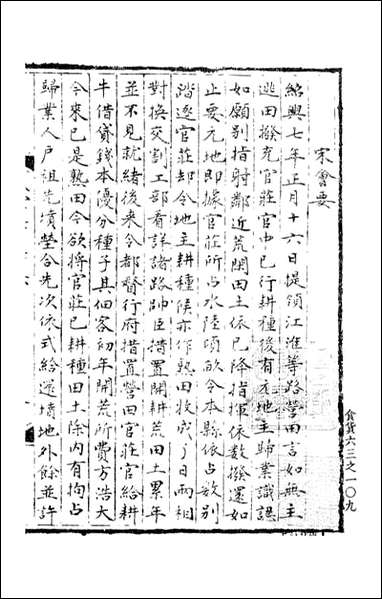 宋會要
紹興七年正月十六日提領江淮等路營田言如無主
逃田撥充官莊官中已行耕種後有元地主歸業識認
如願别指射鄰近荒閑田土依已降指揮依數撥還如
止要元地即據官莊所占水陸頃畝令本縣依占數别
踏逐官莊却令地主耕種候亦作熟田收成了日兩相
對換交割工部看詳諸路帥臣措置開耕荒田土累年
並不見就緒後來令都督行府措置營田官莊官給耕
牛借貸錢本優分種子其佃客初年開荒所費方浩大
今來已是熟田令欲將官莊已耕種田土除內有拘占
歸業人戶祖先墳塋合先次依式給還墳地外餘並許
食貨六三之一〇九